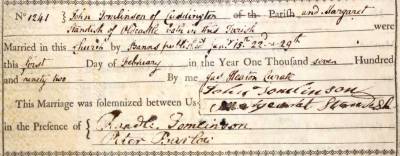 No 1241 John Tomlinson of Cuddington of the Parish and Margaret
Standish of Oldcastle both in this Parish were
Married in this Church by Banns publish'd Jany 15. 22 & 29th
this first Day of February in the Year One Thousand seven Hundred
and ninety two By me Jas Heaton Curate
This Marriage was solemnized between Us John Tomlinson
Margaret Standish
in the Presence of Randle Tomlinson
Peter Barlow